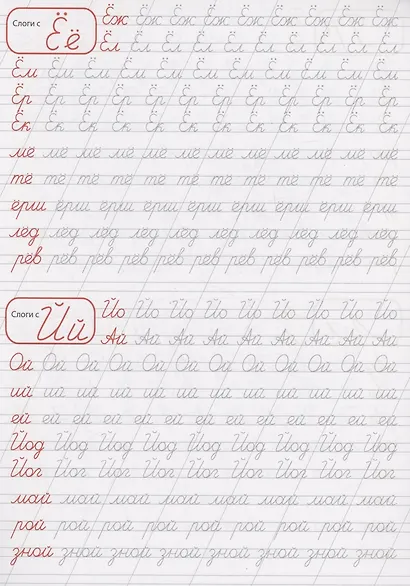 Слоги с Ёё
Ёж Ёж Ёж Ёж Ёж Ёж Ёж Ёж Ёж
Ёл Ёл Ёл Ёл Ёл Ёл Ёл Ёл Ёл
Ём Ём Ём Ём Ём Ём Ём Ём Ём Ём Ём
Ёр Ёр Ёр Ёр Ёр Ёр Ёр Ёр Ёр Ёр Ёр
Ёк Ёк Ёк Ёк Ёк Ёк Ёк Ёк Ёк Ёк Ёк
мё мё мё мё мё мё мё мё мё мё мё
тё тё тё тё тё тё тё тё тё тё тё
ёрш ёрш ёрш ёрш ёрш ёрш ёрш ёрш ёрш
лёд лёд лёд лёд лёд лёд лёд лёд лёд лёд
рёв рёв рёв рёв рёв рёв рёв рёв рёв рёв
Слоги с Йй
Йо Йо Йо Йо Йо Йо Йо Йо Йо
Ай Ай Ай Ай Ай Ай Ай Ай Ай
Ой Ой Ой Ой Ой Ой Ой Ой Ой Ой Ой
ий ий ий ий ий ий ий ий ий ий ий
ей ей ей ей ей ей ей ей ей ей ей ей
Йод Йод Йод Йод Йод Йод Йод Йод Йод
Йог Йог Йог Йог Йог Йог Йог Йог Йог
май май май май май май май май май
рой рой рой рой рой рой рой рой рой
зной зной зной зной зной зной зной зной